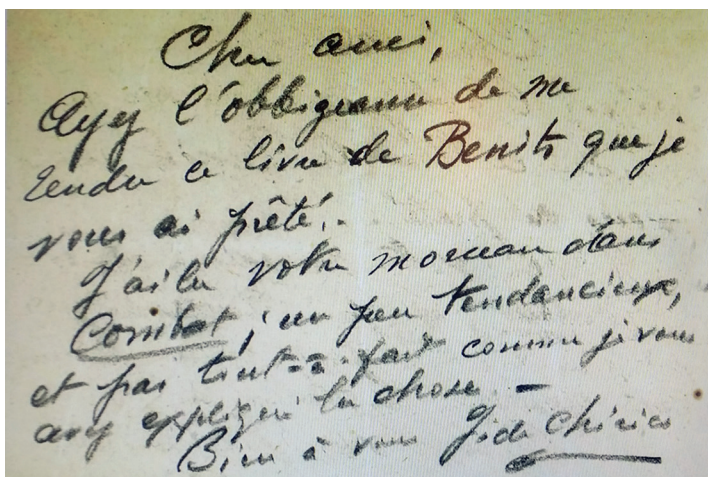 Cher ami,
Ayez l'obbligeance de me
rendre ce livre de Benito que je
vous ai prêté.
J'ai lu votre morceau dans
Combat; un peu tendancieux,
et pas tout-à-fait comme je vous
avez expliqué la chose –
Bien à vous G. de Chirico